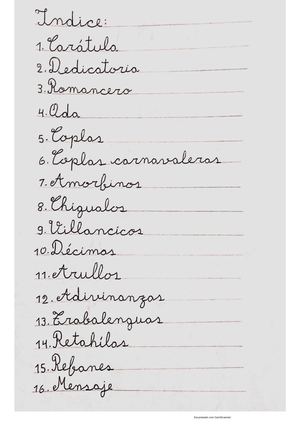 Índice:
1. Carátula
2. Dedicatoria
3. Romancero
4. Oda
5. Coplas
6. Coplas carnavaleras
7. Amorfinos
8. Chigualos
9. Villancicos
10. Décimas
11. Arullos
12. Adivinanzas
13. Trabalenguas
14. Retahílas
15. Refranes
16. Mensaje
Escaneado con CamScanner